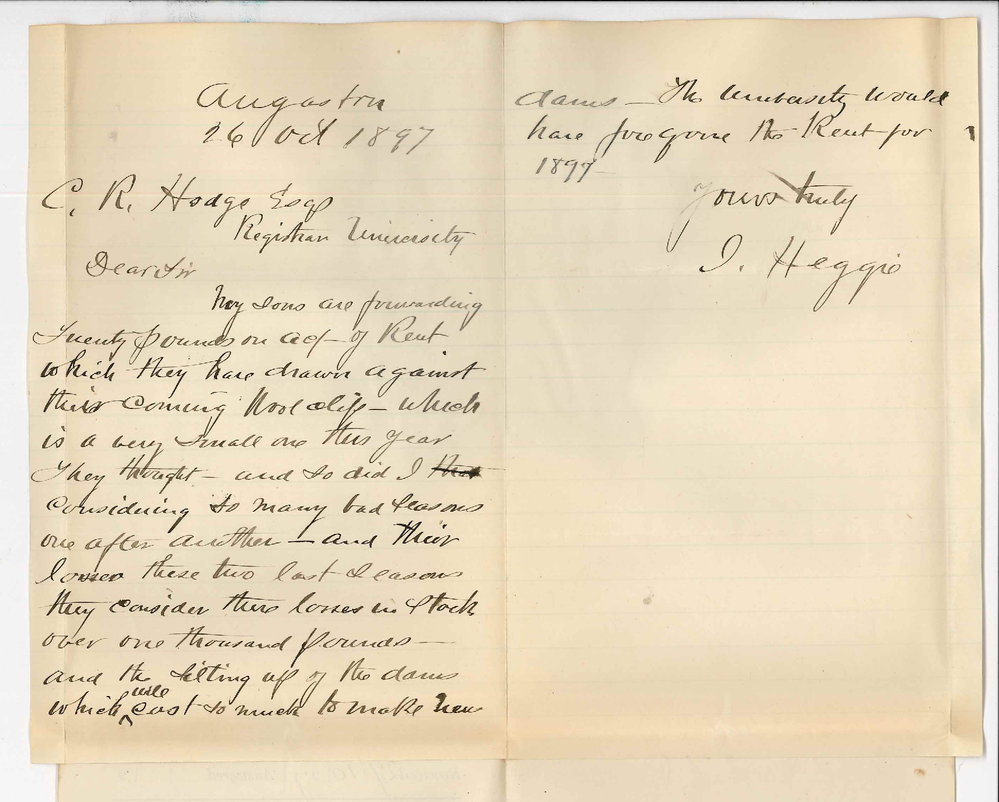 Angaston
26 Oct 1897
C. R. Hodge Esqr
Registrar University
Dear Sir
My sons are forwarding
Twenty pounds on act of Rent
which they have drawn against
their coming Wool clip – which
is a very small one this year
They thought – and so did I that
considering so many bad seasons
one after another – and their
losses these two last seasons
they consider there losses in stock
over one thousand pounds –
and the silting up of the dams
which will cost so much to make new
dams – The University would
have foregone the Rent for
1897
Yours truly
J. Heggie